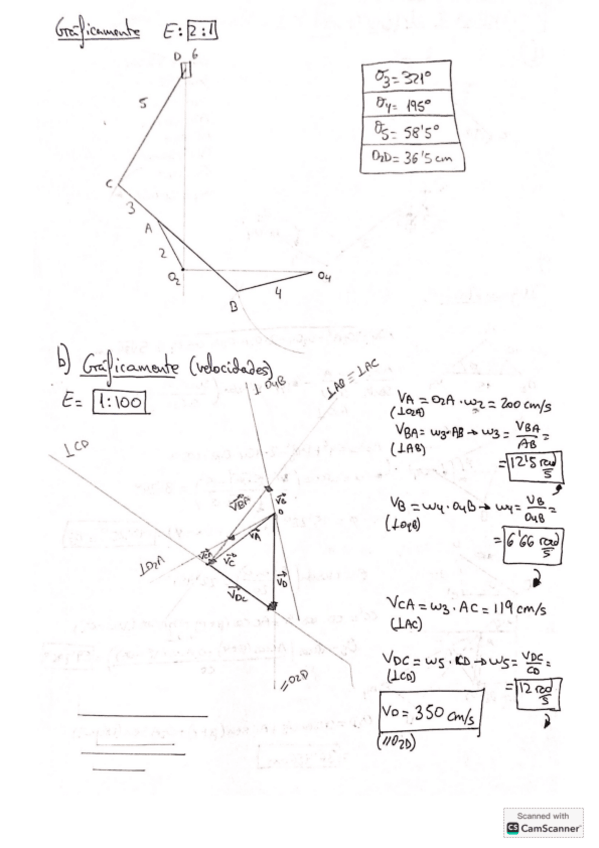 Gráficamente E: 2:1
D 6
5
C
3
A
2
O2
B
4
O4
θ3 = 321º
θ4 = 195º
θ5 = 58'5º
O2D = 36'5 cm
b) Gráficamente (velocidades)
E= 1:100
⊥O4B
⊥AB = ⊥AC
⊥CD
⊥O2A
VBA
VB
O
VA
VCA
VC
VD
VDC
//O2D
VA = O2A · ω2 = 200 cm/s
(⊥O2A)
VBA = ω3 · AB → ω3 = VBA/AB =
(⊥AB)
= 12'5 rad/s
VB = ω4 · O4B → ω4 = VB/O4B =
(⊥O4B)
= 6'66 rad/s
VCA = ω3 · AC = 119 cm/s
(⊥AC)
VDC = ω5 · CD → ω5 = VDC/CD =
(⊥CD)
= 12 rad/s
VD = 350 cm/s
(//O2D)
Scanned with
CS CamScanner